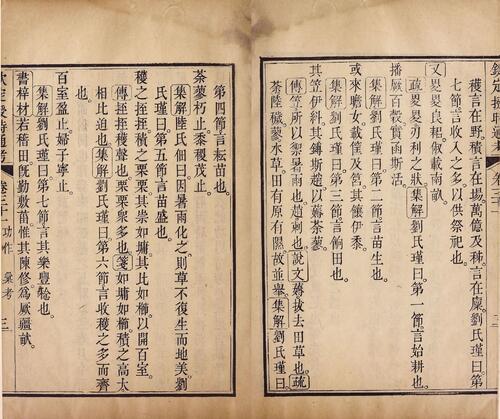 欽定授時通考
穫言在野積言在場萬億及秭言在廩劉氏瑾曰第
七節言收入之多以供祭祀也。
又畟畟良耜俶載南畝。
疏畟畟刃利之狀。集解劉氏瑾曰第一節言始耕也。
播厥百穀實函斯活。
集解劉氏瑾曰第二節言苗生也。
或來瞻女載筐及筥其饟伊黍。
集解劉氏瑾曰第三節言餉田也。
其笠伊糾其鎛斯趙以薅荼蓼。
傳笠所以禦暑雨也趙刺也說文薅拔去田草也疏
荼陸穢蓼水草田有原有隰故並舉。集解劉氏瑾曰
第四節言耘苗也。
荼蓼朽止黍稷茂止。
集解陸氏佃曰因暑雨化之則草不復生而地美劉
氏瑾曰第五節言苗盛也。
穫之挃挃積之栗栗其崇如墉其比如櫛以開百室
傳挃挃穫聲也栗栗衆多也箋如墉如櫛積之高大
相比迫也集解劉氏瑾曰第六節言收穫之多而齊
也。
百室盈止婦子寧止。
集解劉氏瑾曰第七節言其樂豐稔也。
書梓材若稽田旣勤敷菑惟其陳修爲厥疆畝。
欽定授時通考 卷三十一 功作 彙考 三